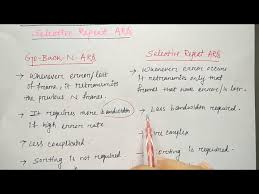 Selective Repeat ARQ
Go-Back-N-ARQ
→ Whenever error/lost
of frame, it retransmits
the previous N frames.
→ It requires more bandwidth
if high error rate
→ Less complicated
→ Sorting is not required
Selective Repeat ARQ
→ Whenever error occurs
It retransmits only that
frames that have error/is later.
→ Less bandwidth required.
complex
Sorting is required